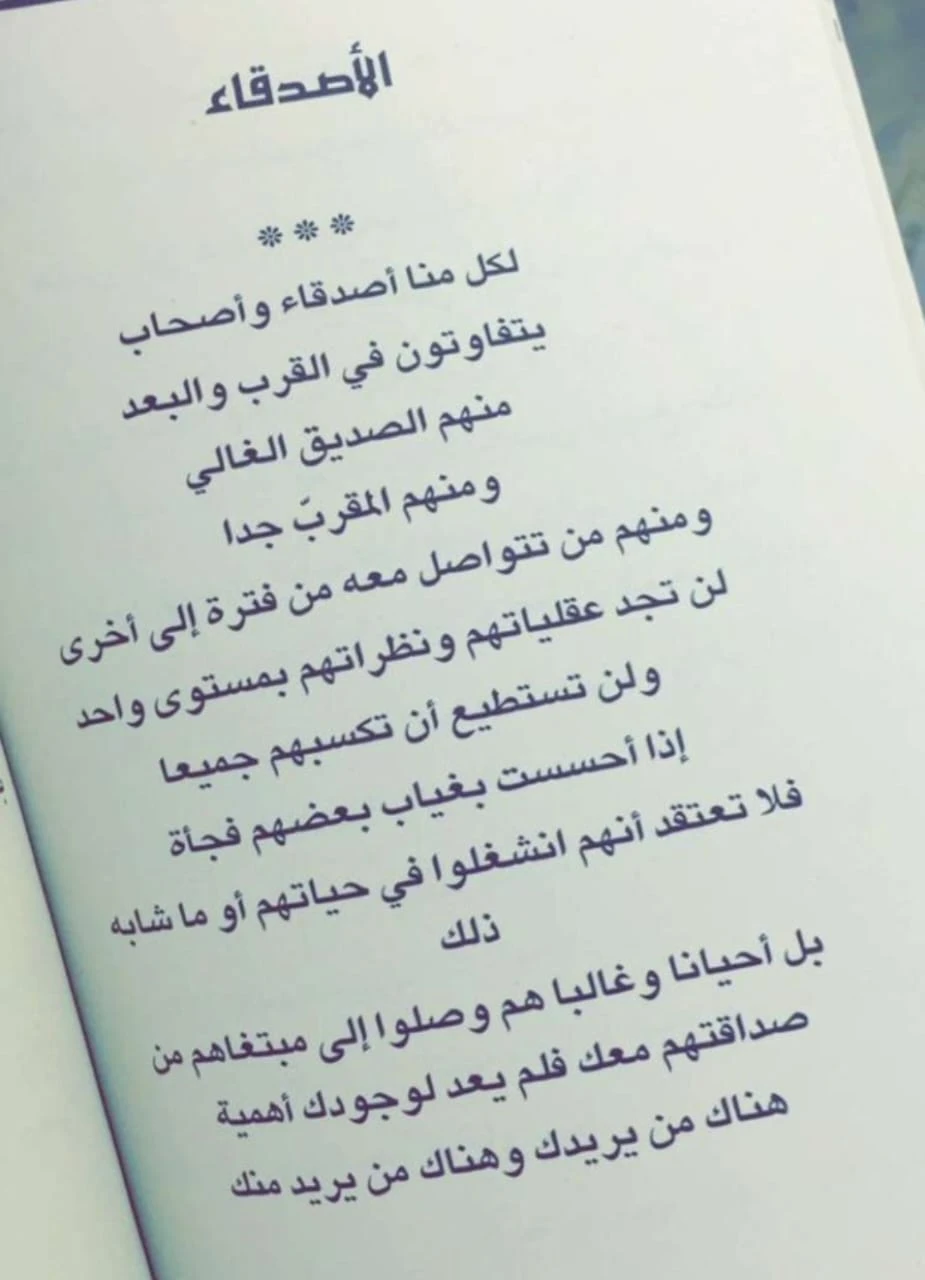 الأصدقاء
❊ ❊ ❊
لكل منا أصدقاء وأصحاب
يتفاوتون في القرب والبعد
منهم الصديق الغالي
ومنهم المقربّ جدا
ومنهم من تتواصل معه من فترة إلى أخرى
لن تجد عقلياتهم ونظراتهم بمستوى واحد
ولن تستطيع أن تكسبهم جميعا
إذا أحسست بغياب بعضهم فجأة
فلا تعتقد أنهم انشغلوا في حياتهم أو ما شابه
ذلك
بل أحيانا وغالبا هم وصلوا إلى مبتغاهم من
صداقتهم معك فلم يعد لوجودك أهمية
هناك من يريدك وهناك من يريد منك